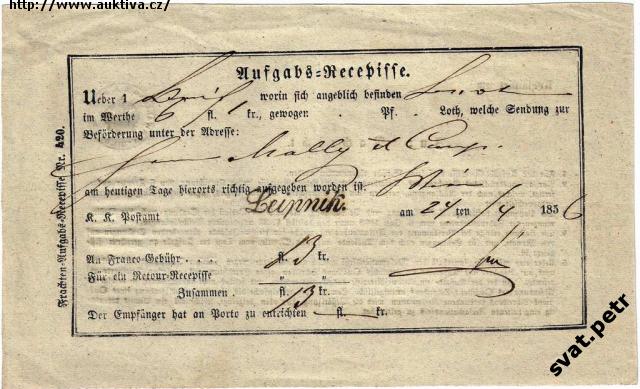 http://www.auktiva.cz/
Aufgabs=Recepisse.
Ueber 1 worin sich angeblich befinden
im Werthe 6 fl. kr., gewogen . Pf. . Loth, welche Sendung zur
Beförderung unter der Adresse:
Mally & Comp.
am heutigen Tage hierorts richtig aufgegeben worden ist. Wien
K. K. Postamt Leipnik. am 24 ten /4 1856
An Franco=Gebühr . . . fl. 13 kr.
Für ein Retour=Recepisse " "
Zusammen . fl. 13 kr.
Der Empfänger hat an Porto zu entrichten — fl. — kr.
Frachten=Aufgabs=Recepisse Nr. 420.
svat.petr